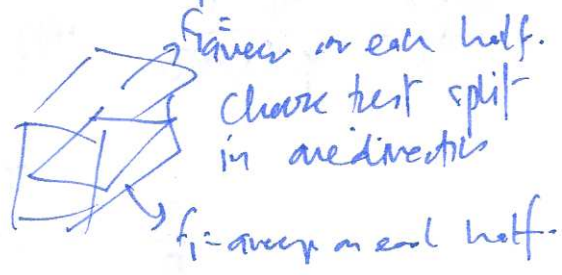 f₂ = average on each half.
choose best split
in one direction
f₁ = average on each half.